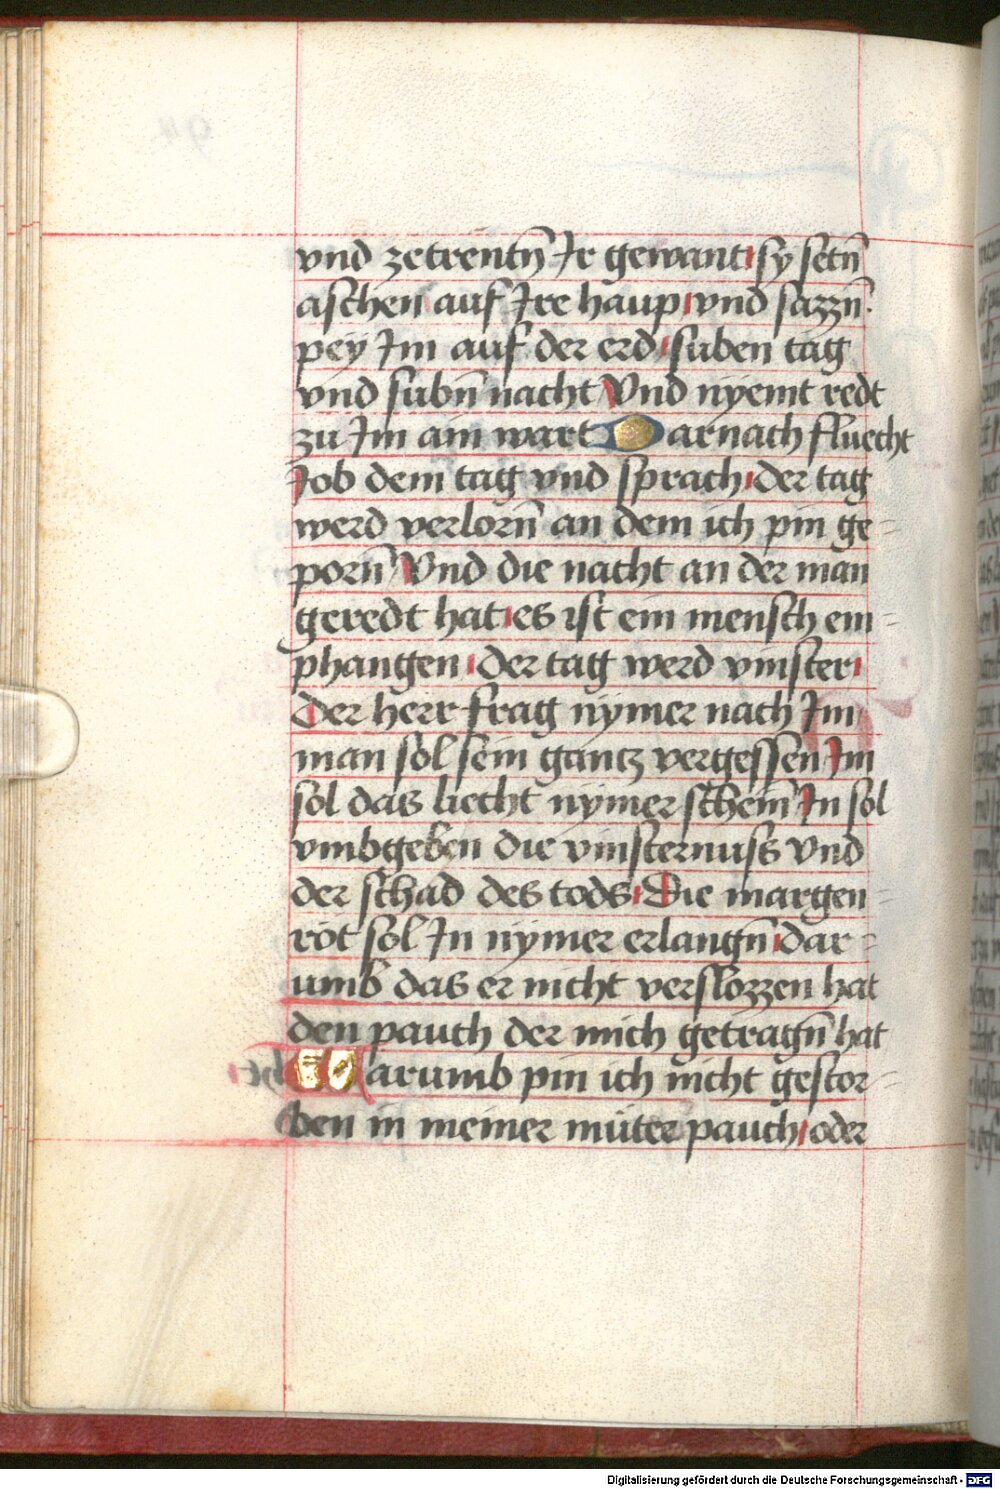 vnd zetrentn̄ Ir gewant sy setn̄
aschen auf Ire haup vnd sazzn̄
pey Im auf der erd suben tag
vnd subn̄ nacht Vnd nyemt redt
zu Im ain wart Darnach fluecht
Job dem tag vnd sprach der tag
werd verlorn̄ an dem ich pin ge=
porn̄ Vnd die nacht an der man
geredt hat es ist ein mensch em=
phangen der tag werd vinster
Der herr frag nymer nach Im
man sol sein gantz vergessen Im
sol das liecht nymer schein̄ In sol
vmbgeben die vinsternuss Vnd
der schad des tods Die margen=
röt sol In nymer erlangn̄ dar=
umb das er nicht verslozzen hat
den pauch der mich getragn̄ hat
Warumb pin ich nicht gestor=
ben in meiner müter pauch oder
Digitalisierung gefördert durch die Deutsche Forschungsgemeinschaft - DFG